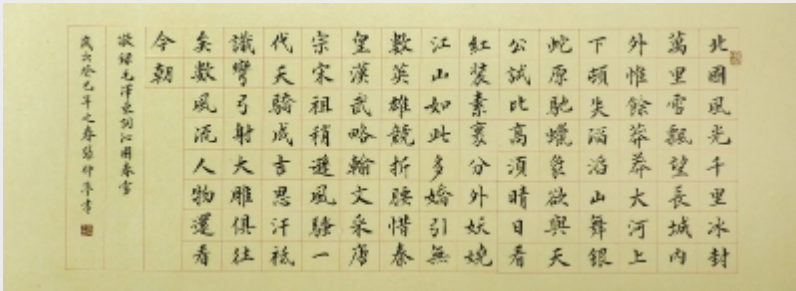 北國風光千里冰封
萬里雪飄望長城內
外惟餘莽莽大河上
下頓失滔滔山舞銀
蛇原馳蠟象欲與天
公試比高須晴日看
紅裝素裹分外妖嬈
江山如此多嬌引無
數英雄競折腰惜秦
皇漢武略輸文采唐
宗宋祖稍遜風騷一
代天驕成吉思汗祗
識彎弓射大雕俱往
矣數風流人物還看
今朝
敬錄毛澤東詞沁園春雪
歲次癸巳年之春書